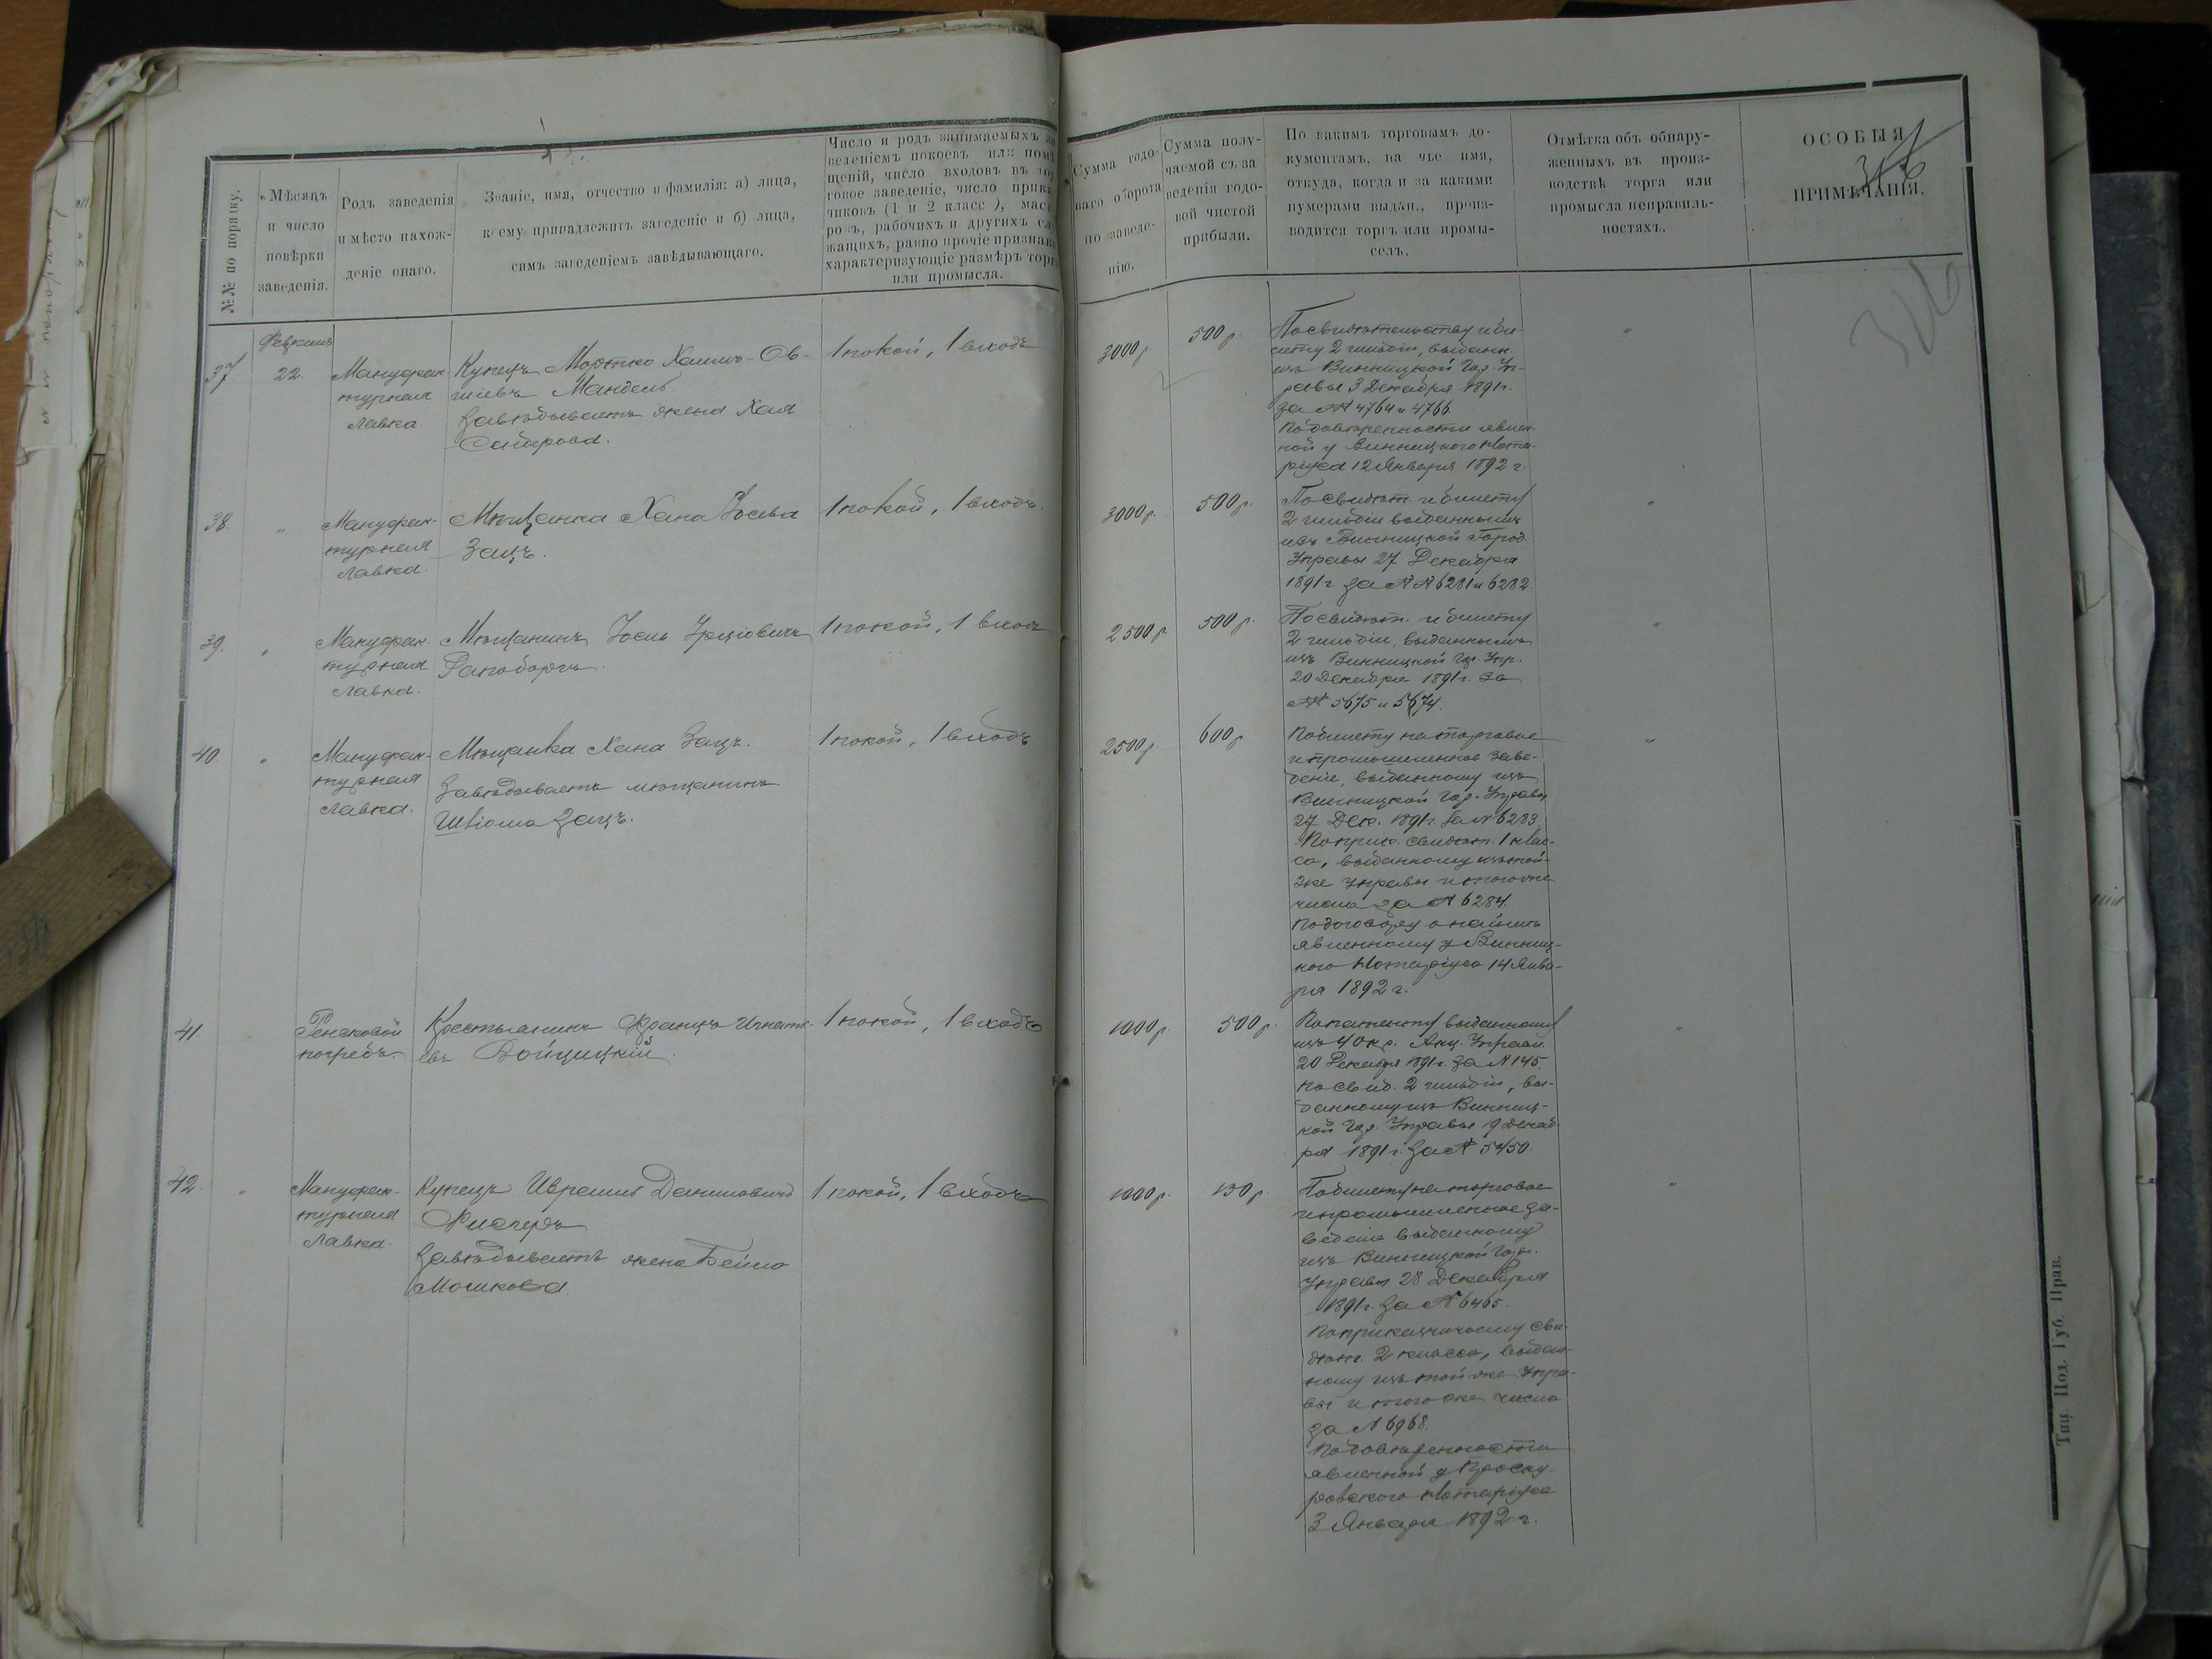 №№ по порядку.
Мѣсяцъ
и число
повѣрки
заведенія.
Родъ заведенія
и мѣсто нахож-
деніе онаго.
Званіе, имя, отчество и фамилія: а) лица,
коему принадлежитъ заведеніе и б) лица,
симъ заведеніемъ завѣдывающаго.
Число и родъ занимаемыхъ за
веденіемъ покоевъ или помѣ
щеній, число входовъ въ тор
говое заведеніе, число прика
чиковъ (1 и 2 класс ), маст
ровъ, рабочихъ и другихъ сл
жащихъ, равно прочіе признаки
характеризующіе размѣръ торга
или промысла.
Сумма годо-
ваго оборота
по заведе-
нію.
Сумма полу-
чаемой съ за
веденія годо-
вой чистой
прибыли.
По какимъ торговымъ до-
кументамъ, на чье имя,
откуда, когда и за какими
нумерами выдан., произ-
водится торгъ или промы-
селъ.
Отмѣтка объ обнару-
женныхъ въ произ-
водствѣ торга или
промысла неправиль-
ностяхъ.
ОСОБЫЯ
ПРИМѢЧАНІЯ.
316
37
Февраля
22.
Мануфак
турная
лавка.
Купецъ Мортко Хаимъ-Ов-
шіевъ Мандель.
Завѣдываетъ жена Хая
1 покой, 1 входъ
3000 р.
500 р.
По свидѣтельству и би-
лету 2 гильдіи, выданн.
изъ Винницкой Гор. Уп-
равы 3 Декабря 1891 г.
за № 4764 и 4766.
По довѣренности явлен-
ной у Винницкого Нота-
ріуса 12 Января 1892 г.
38.
"
Мануфак-
турная
лавка.
Мѣщанка Хана Іосева
Зацъ.
1 покой, 1 входъ.
3000 р.
500 р.
По свидѣт. и билету
2 гильдіи выданнымъ
изъ Винницкой Город.
Управы 27 Декабря
1891 г. за №№ 6281 и 6282.
"
39.
"
Мануфак-
турная
лавка.
Мѣщанинъ Іосль Уріовичъ
Рапобортъ.
1 покой, 1 входъ
2500 р
500 р.
По свидѣт. и билету
2 гильдіи, выданнымъ
изъ Винницкой Гор. Упр.
20 Декабря 1891 г. за
№ 5675 и 5674.
"
40.
"
Мануфак-
турная
лавка.
Мѣщанка Хана Зацъ.
Завѣдываетъ мѣщанинъ
Зацъ.
1 покой, 1 входъ
2500 р.
600 р
По билету на торговое
и промышленное заве-
деніе, выданному изъ
Винницкой Гор. Управы
27 Дек. 1891 г. за № 6283.
По прик. свидѣт. 1 клас-
са, выданному изъ той-
же Управы и того же
числа за № 6284.
По договору о наймѣ
явленному у Винниц-
кого Нотаріуса 14 Янва-
ря 1892 г.
"
41.
"
Ренсковой
погребъ.
Крестьянинъ Францъ Игнать-
евъ Войцицкій.
1 покой, 1 входъ
1000 р
500 р.
По патенту выданному
изъ 4 Окр. Акц. Управл.
20 Декабря 1891 г. за № 145.
По свид. 2 гильдіи, вы-
данному изъ Винниц-
кой Гор. Управы 9 Декаб-
ря 1891 г. за № 5450.
"
42.
"
Мануфак-
турная
лавка.
Купецъ Аврамъ Даниловичъ
Завѣдываетъ жена Бейла
Мошкова.
1 покой, 1 входъ
1000 р.
150 р.
По билету на торговое
и промышленное за-
веденіе выданному
изъ Винницкой Гор.
Управы 28 Декабря
1891 г. за № 6465.
По приказчичьему сви-
дѣт. 2 класса, выдан-
ному изъ той же Упра-
вы и того же числа
за № 6968.
По довѣренности
явленной у Проску-
ровского Нотаріуса
3 Января 1892 г.
"
Тип. Под. Губ. Прав.